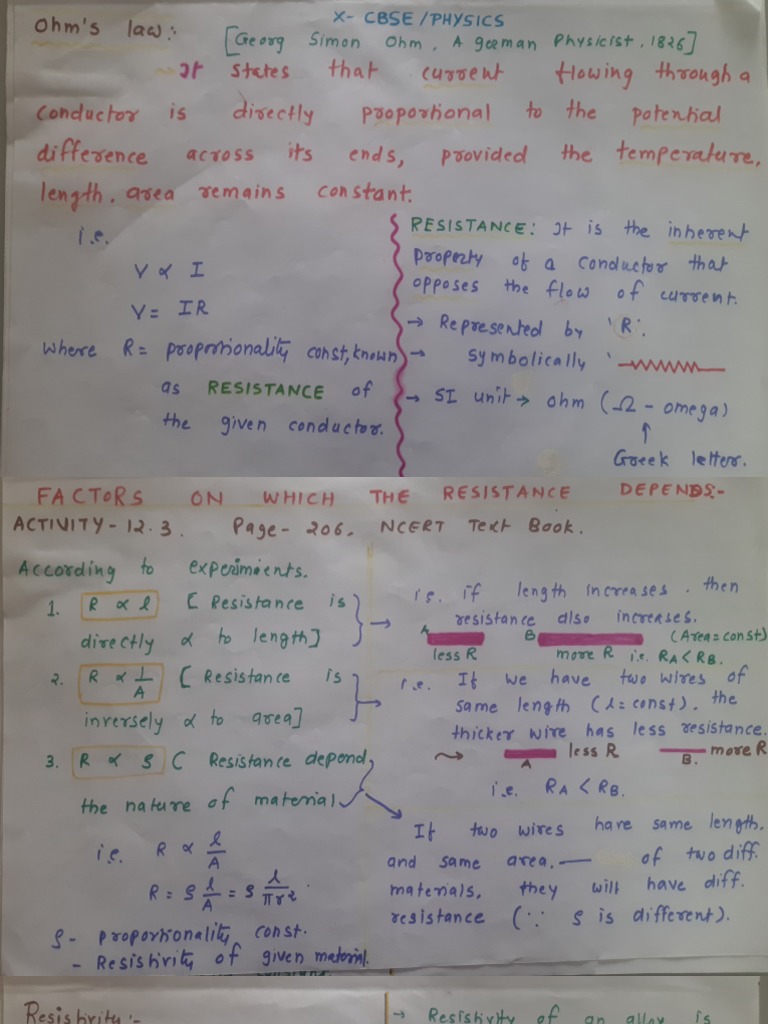 X- CBSE/PHYSICS
Ohm's law:-
[Georg Simon Ohm. A german Physicist. 1826]
It states that current flowing through a
conductor is directly proportional to the potential
difference across its ends, provided the temperature,
length, area remains constant.
i.e.
V ∝ I
V = IR
where R = proportionality const, known
as RESISTANCE of
the given conductor.
RESISTANCE: It is the inherent
property of a conductor that
opposes the flow of current.
→ Represented by 'R'.
→ symbolically '
→ SI unit → ohm (Ω - omega)
↑
Greek letter.
FACTORS ON WHICH THE RESISTANCE DEPENDS:-
ACTIVITY - 12.3. Page - 206. NCERT Text Book.
According to experiments.
1. R ∝ l [Resistance is
directly ∝ to length]
2. R ∝ 1/A [Resistance is
inversely ∝ to area]
3. R ∝ ρ ( Resistance depend,
the nature of material
i.e. R ∝ l/A
R = ρ l/A = ρ l/πr²
ρ - proportionality const.
- Resistivity of given material.
→ i.e. if length increases. then
resistance also increases.
A B (Area=const)
less R more R i.e. RA < RB.
→ i.e. If we have two wires of
same length (l = const). the
thicker wire has less resistance.
less R more R
A B.
i.e. RA < RB.
If two wires have same length.
and same area. — of two diff.
materials, they will have diff.
resistance (∵ ρ is different).
Resistivity:-
→ Resistivity of an alloy is